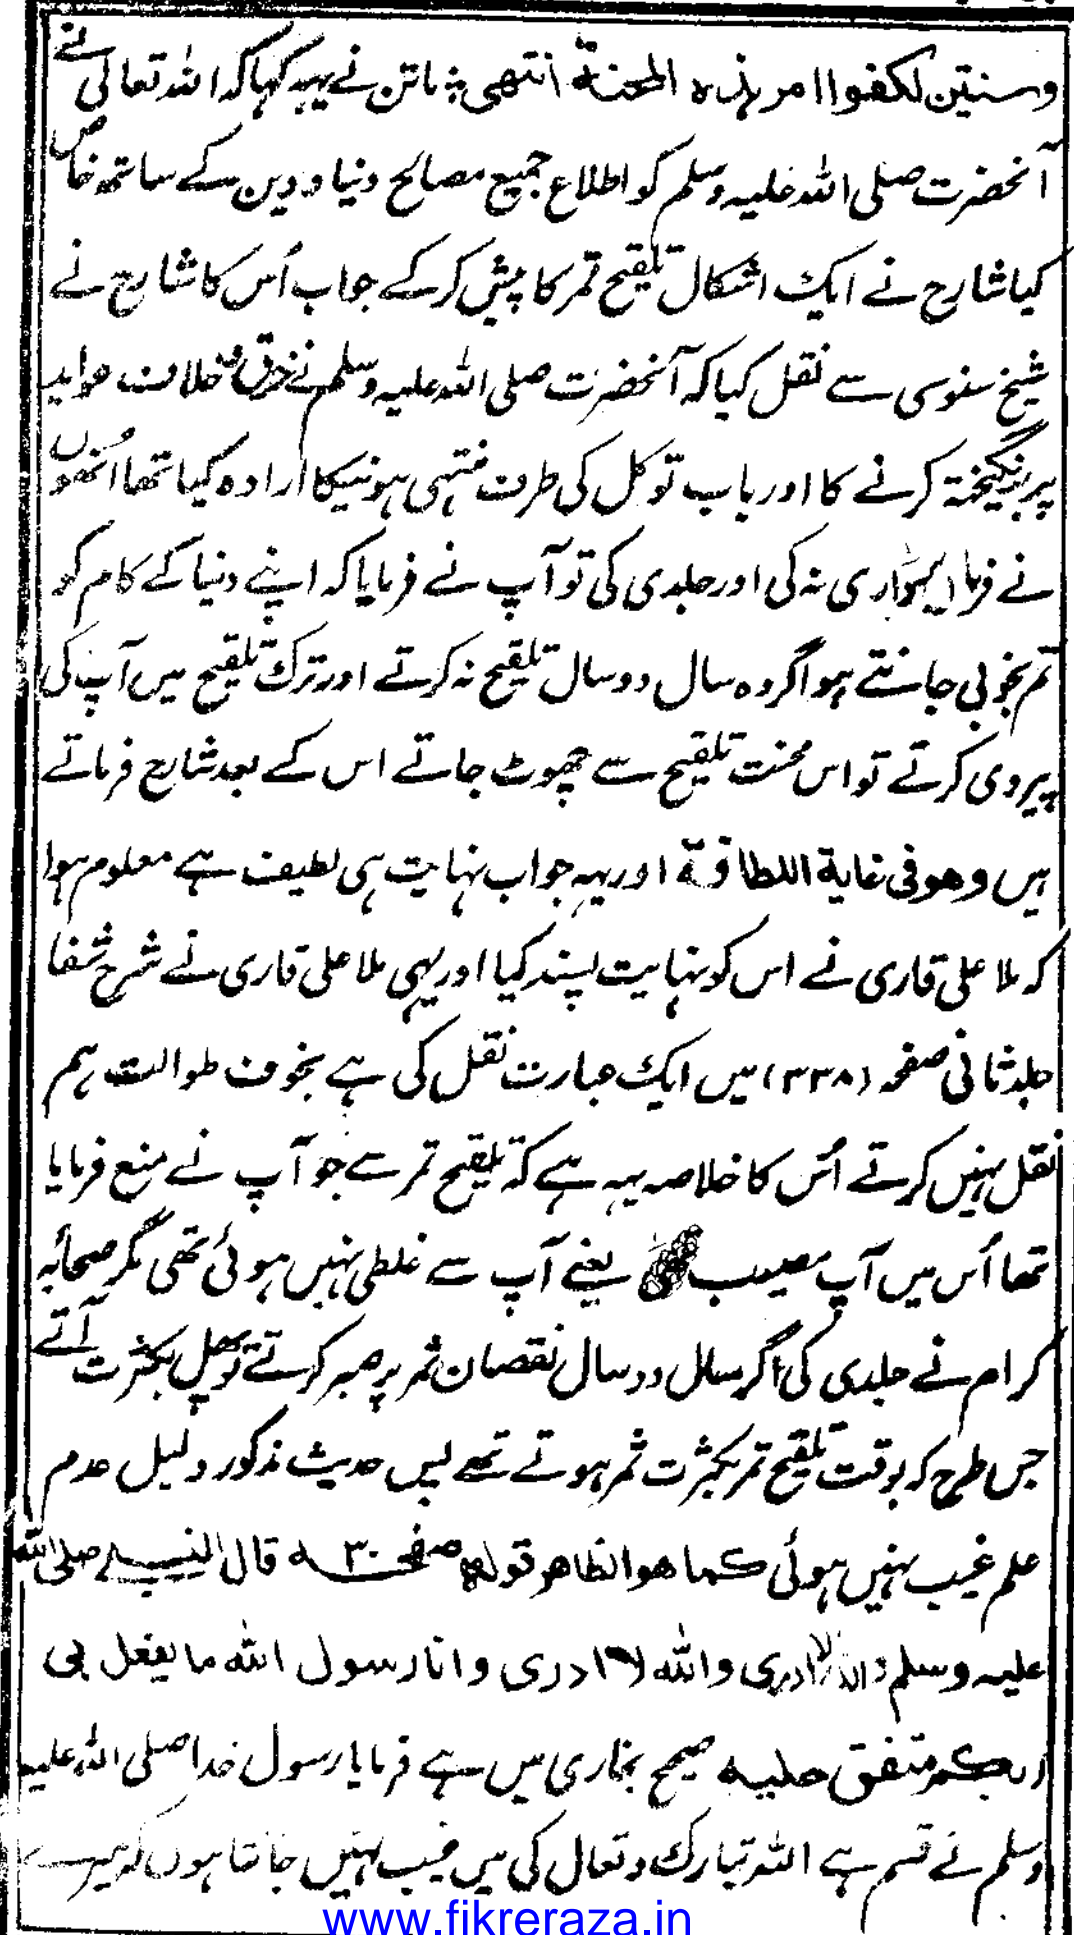 وسنتین لکفوا امر ہذہ المحنۃ انتھی ؛ ماتن نے یہہ کہا کہ اللہ تعالیٰ نے
آنحضرت صلی اللہ علیہ وسلم کو اطلاع جمیع مصالح دنیا ودین کے ساتھ خاص
کیا شارح نے ایک اشکال تلقیح تمر کا پیش کرکے جواب اُس کا شارح نے
شیخ سنوسی سے نقل کیا کہ آنحضرت صلی اللہ علیہ وسلم نے خرق خلاف عواید
پر برنگیختہ کرنے کا اور باب توکل کی طرف منتہی ہونیکا ارادہ کیا تھا اُنھوں
نے فرمانبرداری نہ کی اور جلدی کی تو آپ نے فرمایا کہ اپنے دنیا کے کام کو
تم بخوبی جانتے ہو اگر وہ سال دو سال تلقیح نہ کرتے اور ترک تلقیح میں آپ کی
پیروی کرتے تو اس محنت تلقیح سے چھوٹ جاتے اس کے بعد شارح فرماتے
ہیں وھو فی غایۃ اللطافۃ اور یہہ جواب نہایت ہی لطیف ہے معلوم ہوا
کہ ملا علی قاری نے اس کو نہایت پسند کیا اور یہی ملا علی قاری نے شرح شفا
جلد ثانی صفحہ (۳۳۸) میں ایک عبارت نقل کی ہے بخوف طوالت ہم
نقل نہیں کرتے اُس کا خلاصہ یہہ ہے کہ تلقیح تمر سے جو آپ نے منع فرمایا
تھا اُس میں آپ مصیب یعنے آپ سے غلطی نہیں ہوئی تھی مگر صحابہ
کرام نے جلدی کی اگر سال دو سال نقصان ثمر پر صبر کرتے تو پھل بکثرت آتے
جس طرح کہ بوقت تلقیح تمر بکثرت ثمر ہوتے تھے پس حدیث مذکور دلیل عدم
علم غیب نہیں ہوئی کما ھو الظاھر قولہ صفحہ ۳۰ قال النبی صلی اللہ
علیہ وسلم واللہ لا ادری واللہ لا ادری وانا رسول اللہ ما یفعل بی
ولا بکم متفق علیہ صحیح بخاری میں ہے فرمایا رسول خدا صلی اللہ علیہ
وسلم نے قسم ہے اللہ تبارک وتعال کی میں غیب نہیں جانتا ہوں کہ میرے
www.fikreraza.in